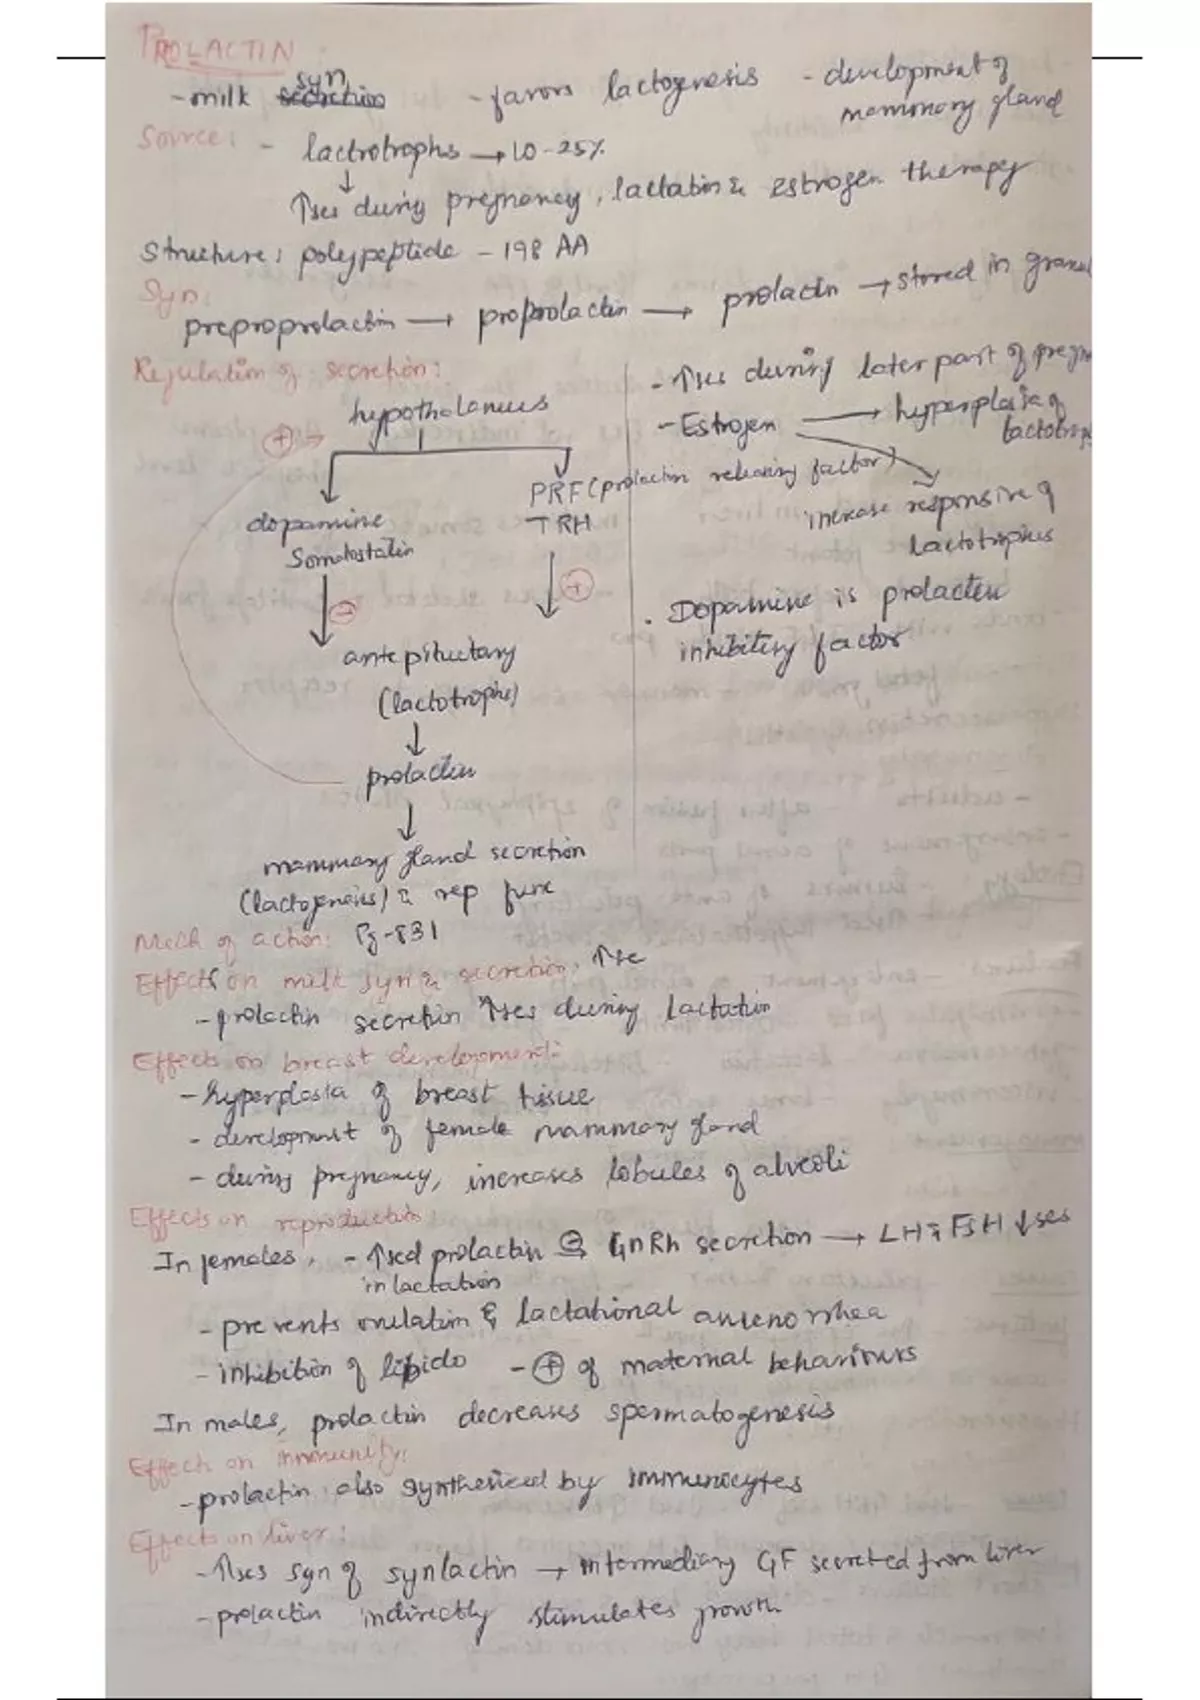 PROLACTIN
syn
- milk secretion - favors lactogenesis - development of
mammory gland
Source: - lactrotrophs → 10-25%
↓
↑ses during pregnancy, lactation & estrogen therapy
Structure: polypeptide - 198 AA
Syn:
preproprolactin → proprolactin → prolactin → stored in granul
Regulation of secretion:
hypothalamus
⊕→
dopamine
Somatostatin
PRF (prolactin releasing factor)
TRH
⊖
⊕
ante pituctary
(lactotrophs)
↓
prolactin
↓
mammary gland secretion
(lactogenesis) & rep func
- ↑ses during later part of pregn
- Estrogen → hyperplasia of
lactotrop
increase responsive of
lactotrophs
. Dopamine is prolactin
inhibitory factor
Mech of action: Pg-831
Effects on milk syn & secretion: ↑se
- prolactin secretion ↑ses during lactation
Effects on breast development:
- hyperplasia of breast tissue
- development of female mammary gland
- during pregnancy, increases lobules of alveoli
Effects on reproduction
In females, - ↑sed prolactin ⊖ GnRh secretion → LH & FSH ↓ses
in lactation
- prevents ovulation & lactational amenorrhea
- inhibition of libido - ⊕ of maternal behaviours
In males, prolactin decreases spermatogenesis
Effect on immunity:
- prolactin also synthesised by immunocytes
Effects on liver:
- ↑ses syn of synlactin → intermediary GF secreted from liver
- prolactin indirectly stimulates growth